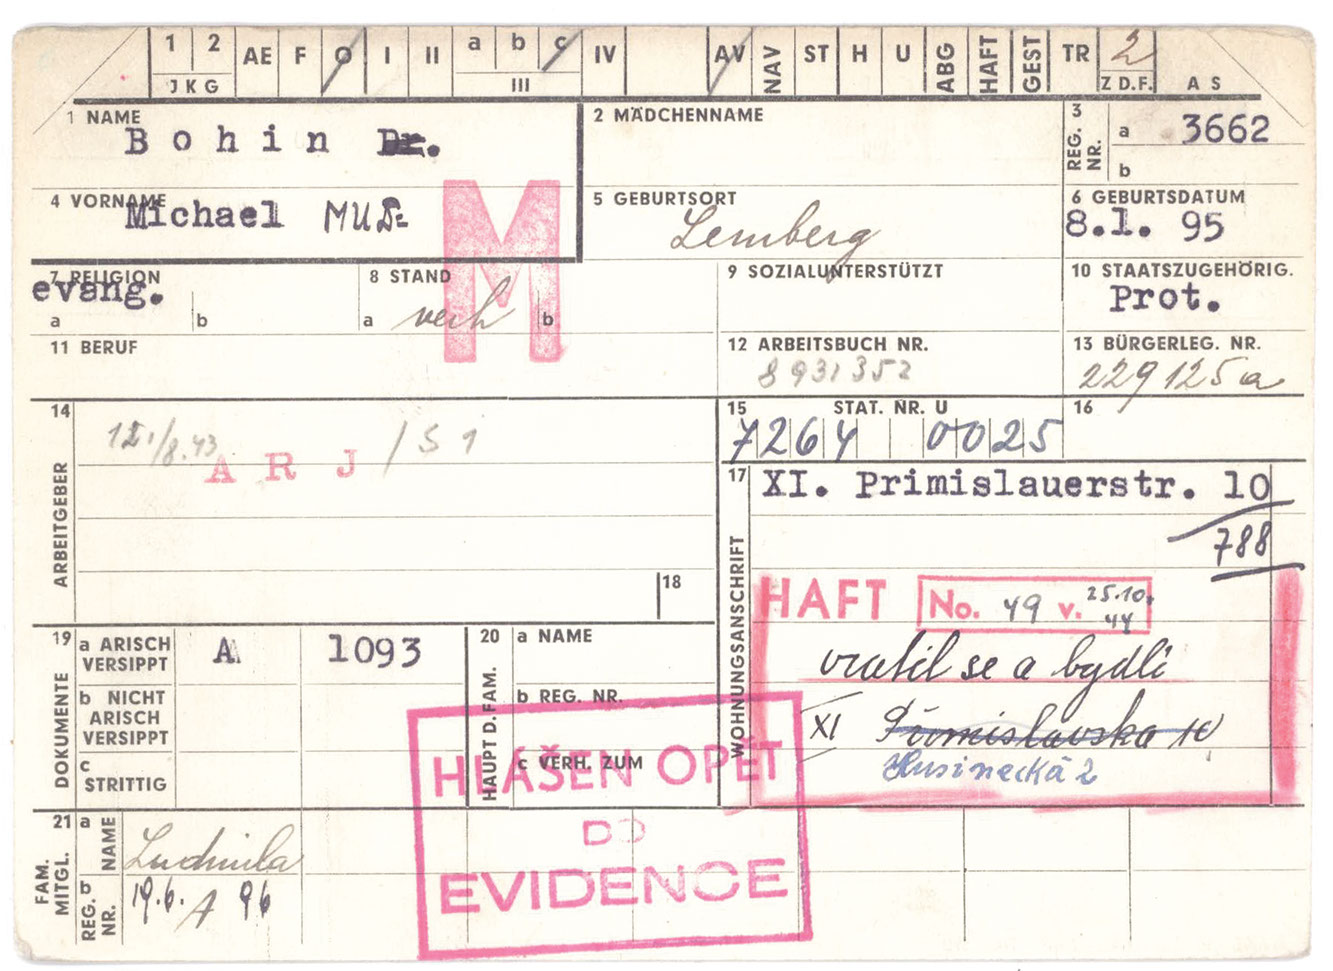 1 2 AE F O I II a b c IV AV NAV ST H U ABG HAFT GEST TR 2
J K G III Z D.F. A S
1 NAME
Bohin Dr.
2 MÄDCHENNAME
3 REG. NR. a 3662
b
4 VORNAME
Michael MUDr.
M
5 GEBURTSORT
Lemberg
6 GEBURTSDATUM
8.1. 95
7 RELIGION
evang.
a b
8 STAND
a verh b
9 SOZIALUNTERSTÜTZT
10 STAATSZUGEHÖRIG.
Prot.
11 BERUF
12 ARBEITSBUCH NR.
8931352
13 BÜRGERLEG. NR.
229125a
14 ARBEITGEBER
/8.43
A R J / S 1
15 STAT. NR. U
7264 0025
16
17 WOHNUNGSANSCHRIFT
XI. Primislauerstr. 10
788
HAFT No. 49 v. 25.10. 44
vratil se a bydlí
XI Přimislavska 10
Husinecká 2
18
19 DOKUMENTE
a ARISCH VERSIPPT A 1093
b NICHT ARISCH VERSIPPT
c STRITTIG
20 HAUPT D. FAM.
a NAME
b REG. NR.
c VERH. ZUM
HLÁŠEN OPĚT
DO
EVIDENCE
21 FAM. MITGL.
a NAME Ludmila
b REG. NR. 19.6. A 96